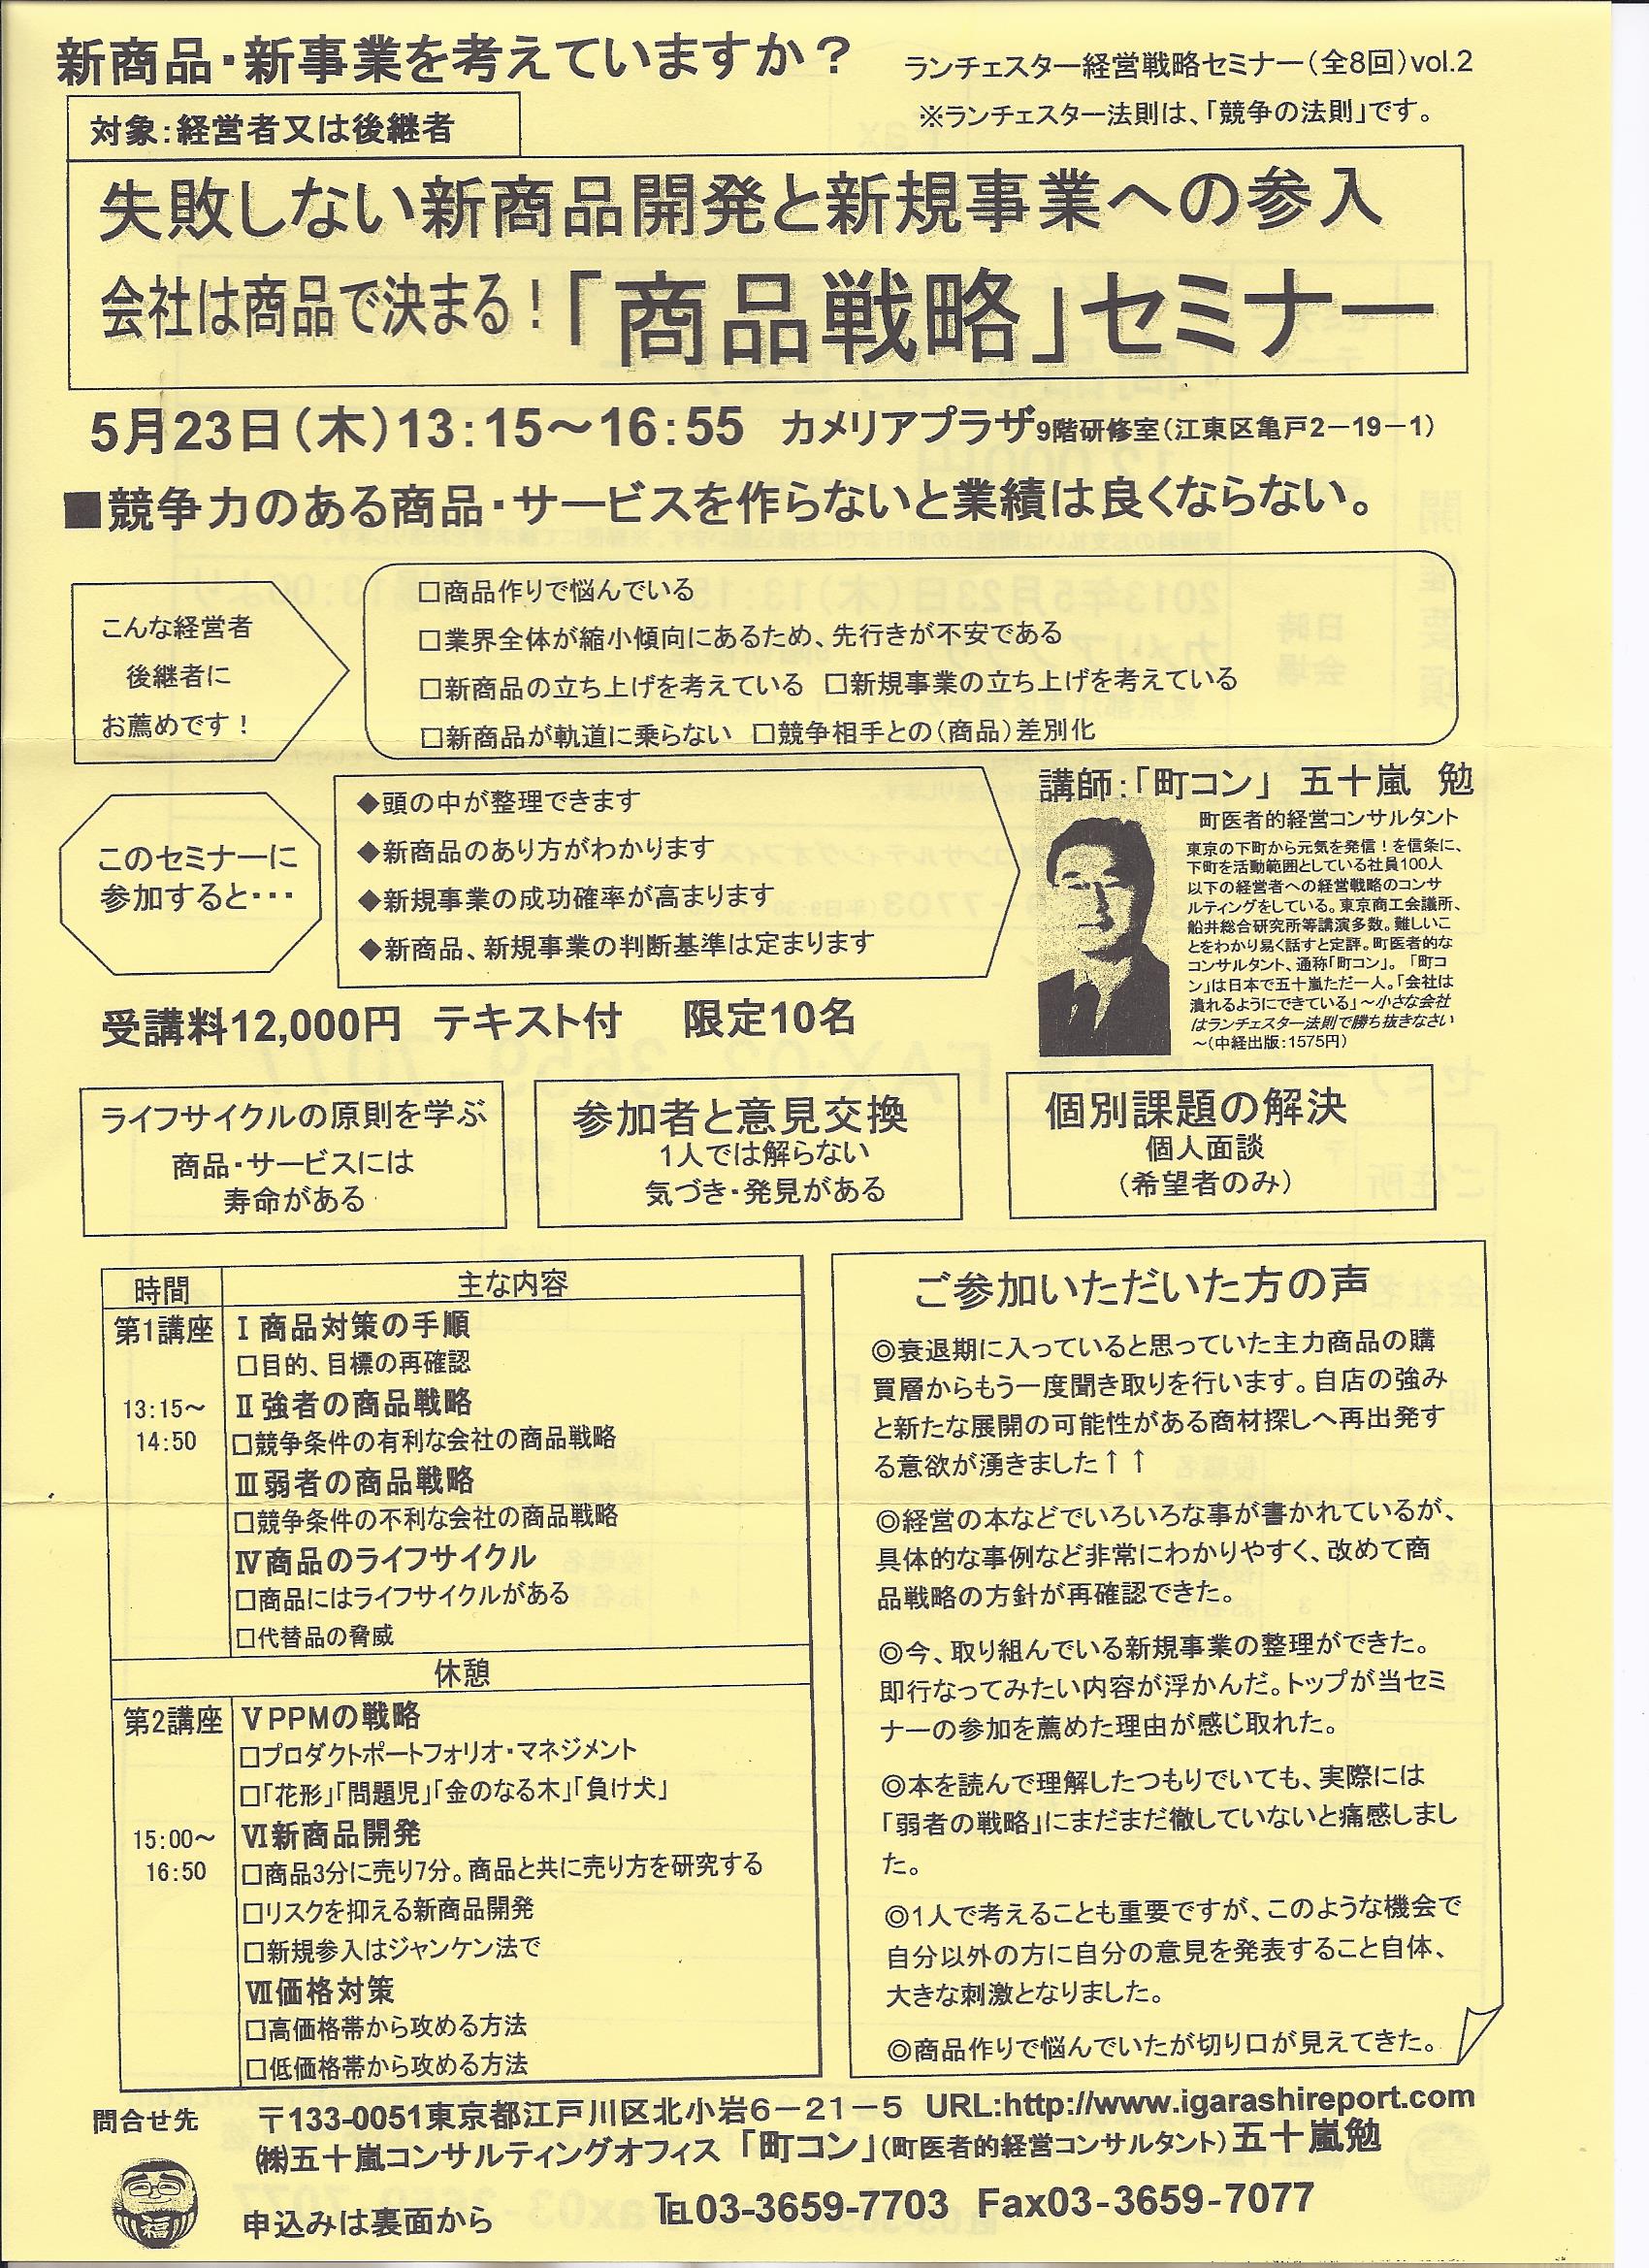 新商品・新事業を考えていますか？
ランチェスター経営戦略セミナー(全8回)vol.2
※ランチェスター法則は、「競争の法則」です。
対象：経営者又は後継者
失敗しない新商品開発と新規事業への参入
会社は商品で決まる！「商品戦略」セミナー
5月23日(木)13：15～16：55 カメリアプラザ9階研修室(江東区亀戸2－19－1)
■競争力のある商品・サービスを作らないと業績は良くならない。
こんな経営者
後継者に
お薦めです！
□商品作りで悩んでいる
□業界全体が縮小傾向にあるため、先行きが不安である
□新商品の立ち上げを考えている □新規事業の立ち上げを考えている
□新商品が軌道に乗らない □競争相手との(商品)差別化
このセミナーに
参加すると・・・
◆頭の中が整理できます
◆新商品のあり方がわかります
◆新規事業の成功確率が高まります
◆新商品、新規事業の判断基準は定まります
講師：「町コン」 五十嵐 勉
町医者的経営コンサルタント
東京の下町から元気を発信！を信条に、
下町を活動範囲としている社員100人
以下の経営者への経営戦略のコンサ
ルティングをしている。東京商工会議所、
船井総合研究所等講演多数。難しいこ
とをわかり易く話すと定評。町医者的な
コンサルタント、通称「町コン」。「町コ
ン」は日本で五十嵐ただ一人。「会社は
潰れるようにできている」～小さな会社
はランチェスター法則で勝ち抜きなさい
～(中経出版：1575円)
受講料12,000円 テキスト付 限定10名
ライフサイクルの原則を学ぶ
商品・サービスには
寿命がある
参加者と意見交換
1人では解らない
気づき・発見がある
個別課題の解決
個人面談
(希望者のみ)
時間 主な内容
第1講座 Ⅰ商品対策の手順
□目的、目標の再確認
13：15～ Ⅱ強者の商品戦略
14：50 □競争条件の有利な会社の商品戦略
Ⅲ弱者の商品戦略
□競争条件の不利な会社の商品戦略
Ⅳ商品のライフサイクル
□商品にはライフサイクルがある
□代替品の脅威
休憩
第2講座 ⅤPPMの戦略
□プロダクトポートフォリオ・マネジメント
□「花形」「問題児」「金のなる木」「負け犬」
15：00～ Ⅵ新商品開発
16：50 □商品3分に売り7分。商品と共に売り方を研究する
□リスクを抑える新商品開発
□新規参入はジャンケン法で
Ⅶ価格対策
□高価格帯から攻める方法
□低価格帯から攻める方法
ご参加いただいた方の声
◎衰退期に入っていると思っていた主力商品の購
買層からもう一度聞き取りを行います。自店の強み
と新たな展開の可能性がある商材探しへ再出発す
る意欲が湧きました↑↑
◎経営の本などでいろいろな事が書かれているが、
具体的な事例など非常にわかりやすく、改めて商
品戦略の方針が再確認できた。
◎今、取り組んでいる新規事業の整理ができた。
即行なってみたい内容が浮かんだ。トップが当セミ
ナーの参加を薦めた理由が感じ取れた。
◎本を読んで理解したつもりでいても、実際には
「弱者の戦略」にまだまだ徹していないと痛感しまし
た。
◎1人で考えることも重要ですが、このような機会で
自分以外の方に自分の意見を発表すること自体、
大きな刺激となりました。
◎商品作りで悩んでいたが切り口が見えてきた。
問合せ先
〒133-0051東京都江戸川区北小岩6－21－5 URL:http://www.igarashireport.com
㈱五十嵐コンサルティングオフィス 「町コン」(町医者的経営コンサルタント)五十嵐勉
福
申込みは裏面から
℡03-3659-7703 Fax03-3659-7077